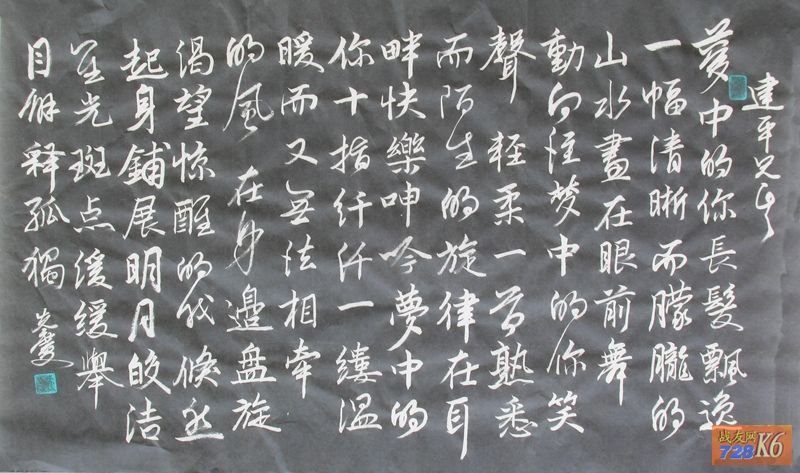 建平兄正
夢中的你長髮飄逸
一幅清晰而朦朧的
山水畫在眼前舞
動向往梦中的你笑
聲輕柔一首熟悉
而陌生的旋律在耳
畔快樂呻吟夢中的
你十指纤纤一縷温
暖而又无法相牽
的風在身邊盤旋
渴望惊醒的我倏然
起身鋪展明月皎洁
星光斑点缓缓舉
目解释孤獨
战友网
728 K6